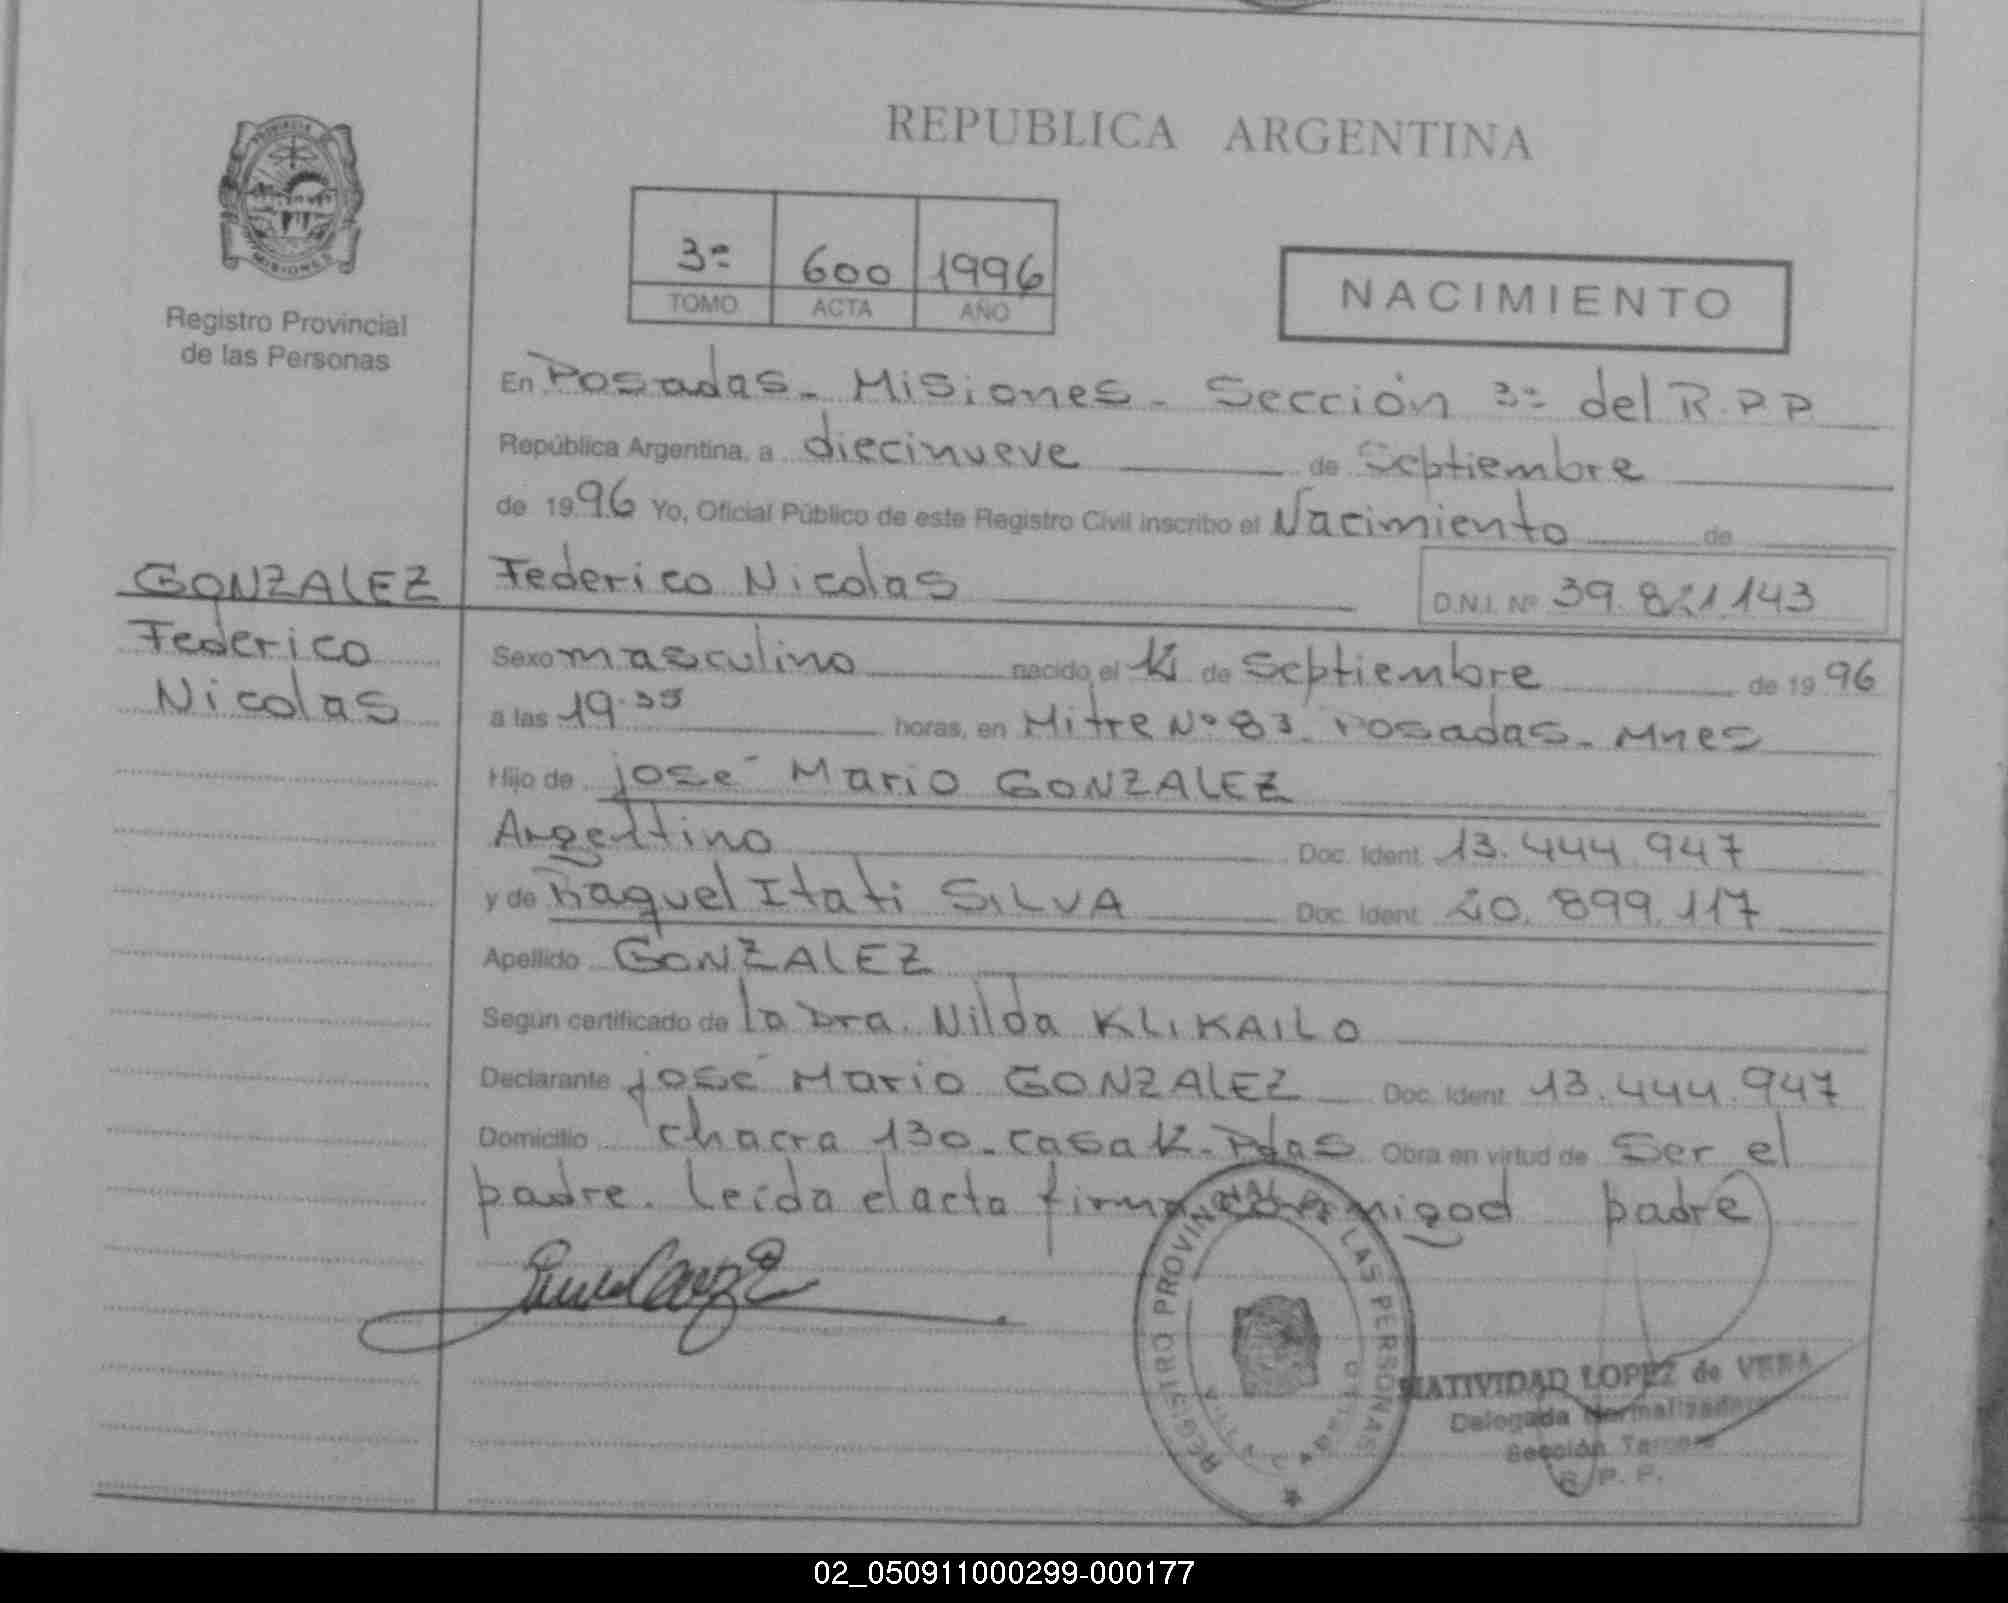 REPUBLICA ARGENTINA
PROVINCIA DE
MISIONES
Registro Provincial
de las Personas
3ª 600 1996
TOMO ACTA AÑO
NACIMIENTO
En Posadas - Misiones - Sección 3ª del R.P.P
República Argentina, a diecinueve de Septiembre
de 1996 Yo, Oficial Público de este Registro Civil inscribo el Nacimiento de
GONZALEZ Federico Nicolas D.N.I. Nº 39.821.143
Federico
Nicolas
Sexo masculino nacido el de Septiembre de 1996
a las 19.35 horas, en Mitre Nº 83. Posadas - Mnes
Hijo de José Mario GONZALEZ
Argentino Doc. Ident. 13.444.947
y de Raquel Itati SILVA Doc. Ident. 20.899.117
Apellido GONZALEZ
Según certificado de la Dra. Nilda KLIKAILO
Declarante José Mario GONZALEZ Doc. Ident. 13.444.947
Domicilio chacra 130 - casa - Pdas Obra en virtud de Ser el
padre. Leida el acta firma conmigo el padre
REGISTRO PROVINCIAL DE LAS PERSONAS
NATIVIDAD LOPEZ de VERA
Delegada Normalizadora
Sección Tercera
R. P. P.
02_050911000299-000177